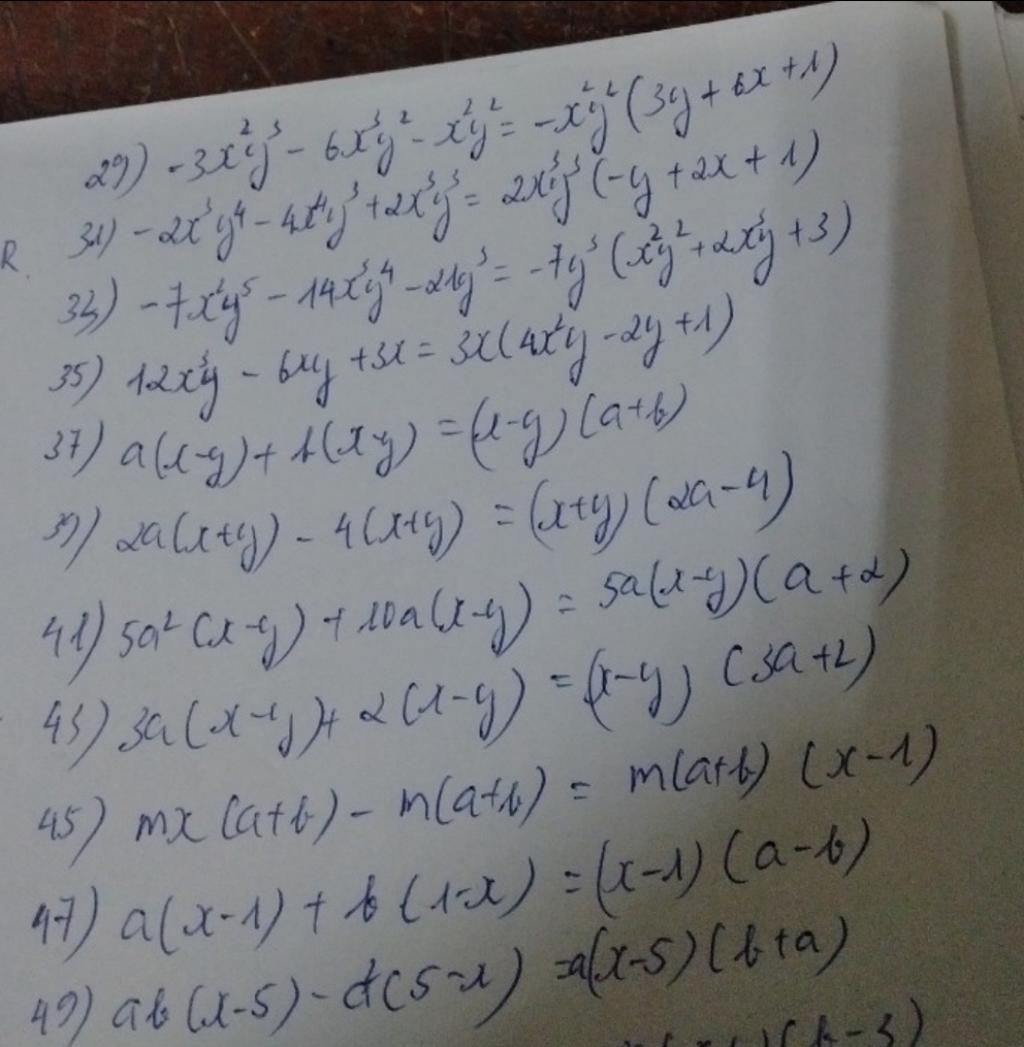 29) -3x²y³ - 6x³y² - x²y² = -x²y² (3y + 6x + 1)
31) -2x³y⁴ - 4x⁴y³ + 2x³y³ = 2x³y³ (-y + 2x + 1)
R.
33) -7x²y⁵ - 14x³y⁴ - 21y³ = -7y³ (x²y² + 2x³y + 3)
35) 12x³y - 6xy + 3x = 3x(4x²y - 2y + 1)
37) a(x-y) + b(x-y) = (x-y) (a+b)
39) 2a(x+y) - 4(x+y) = (x+y) (2a-4)
41) 5a² (x-y) + 10a(x-y) = 5a(x-y)(a+2)
43) 3a(x-y)+ 2(x-y) = (x-y) (3a+2)
45) mx (a+b) - m(a+b) = m(a+b) (x-1)
47) a(x-1) + b (1-x) = (x-1) (a-b)
49) ab (x-5) - a²(5-x) =a(x-5)(b+a)
(b-3)